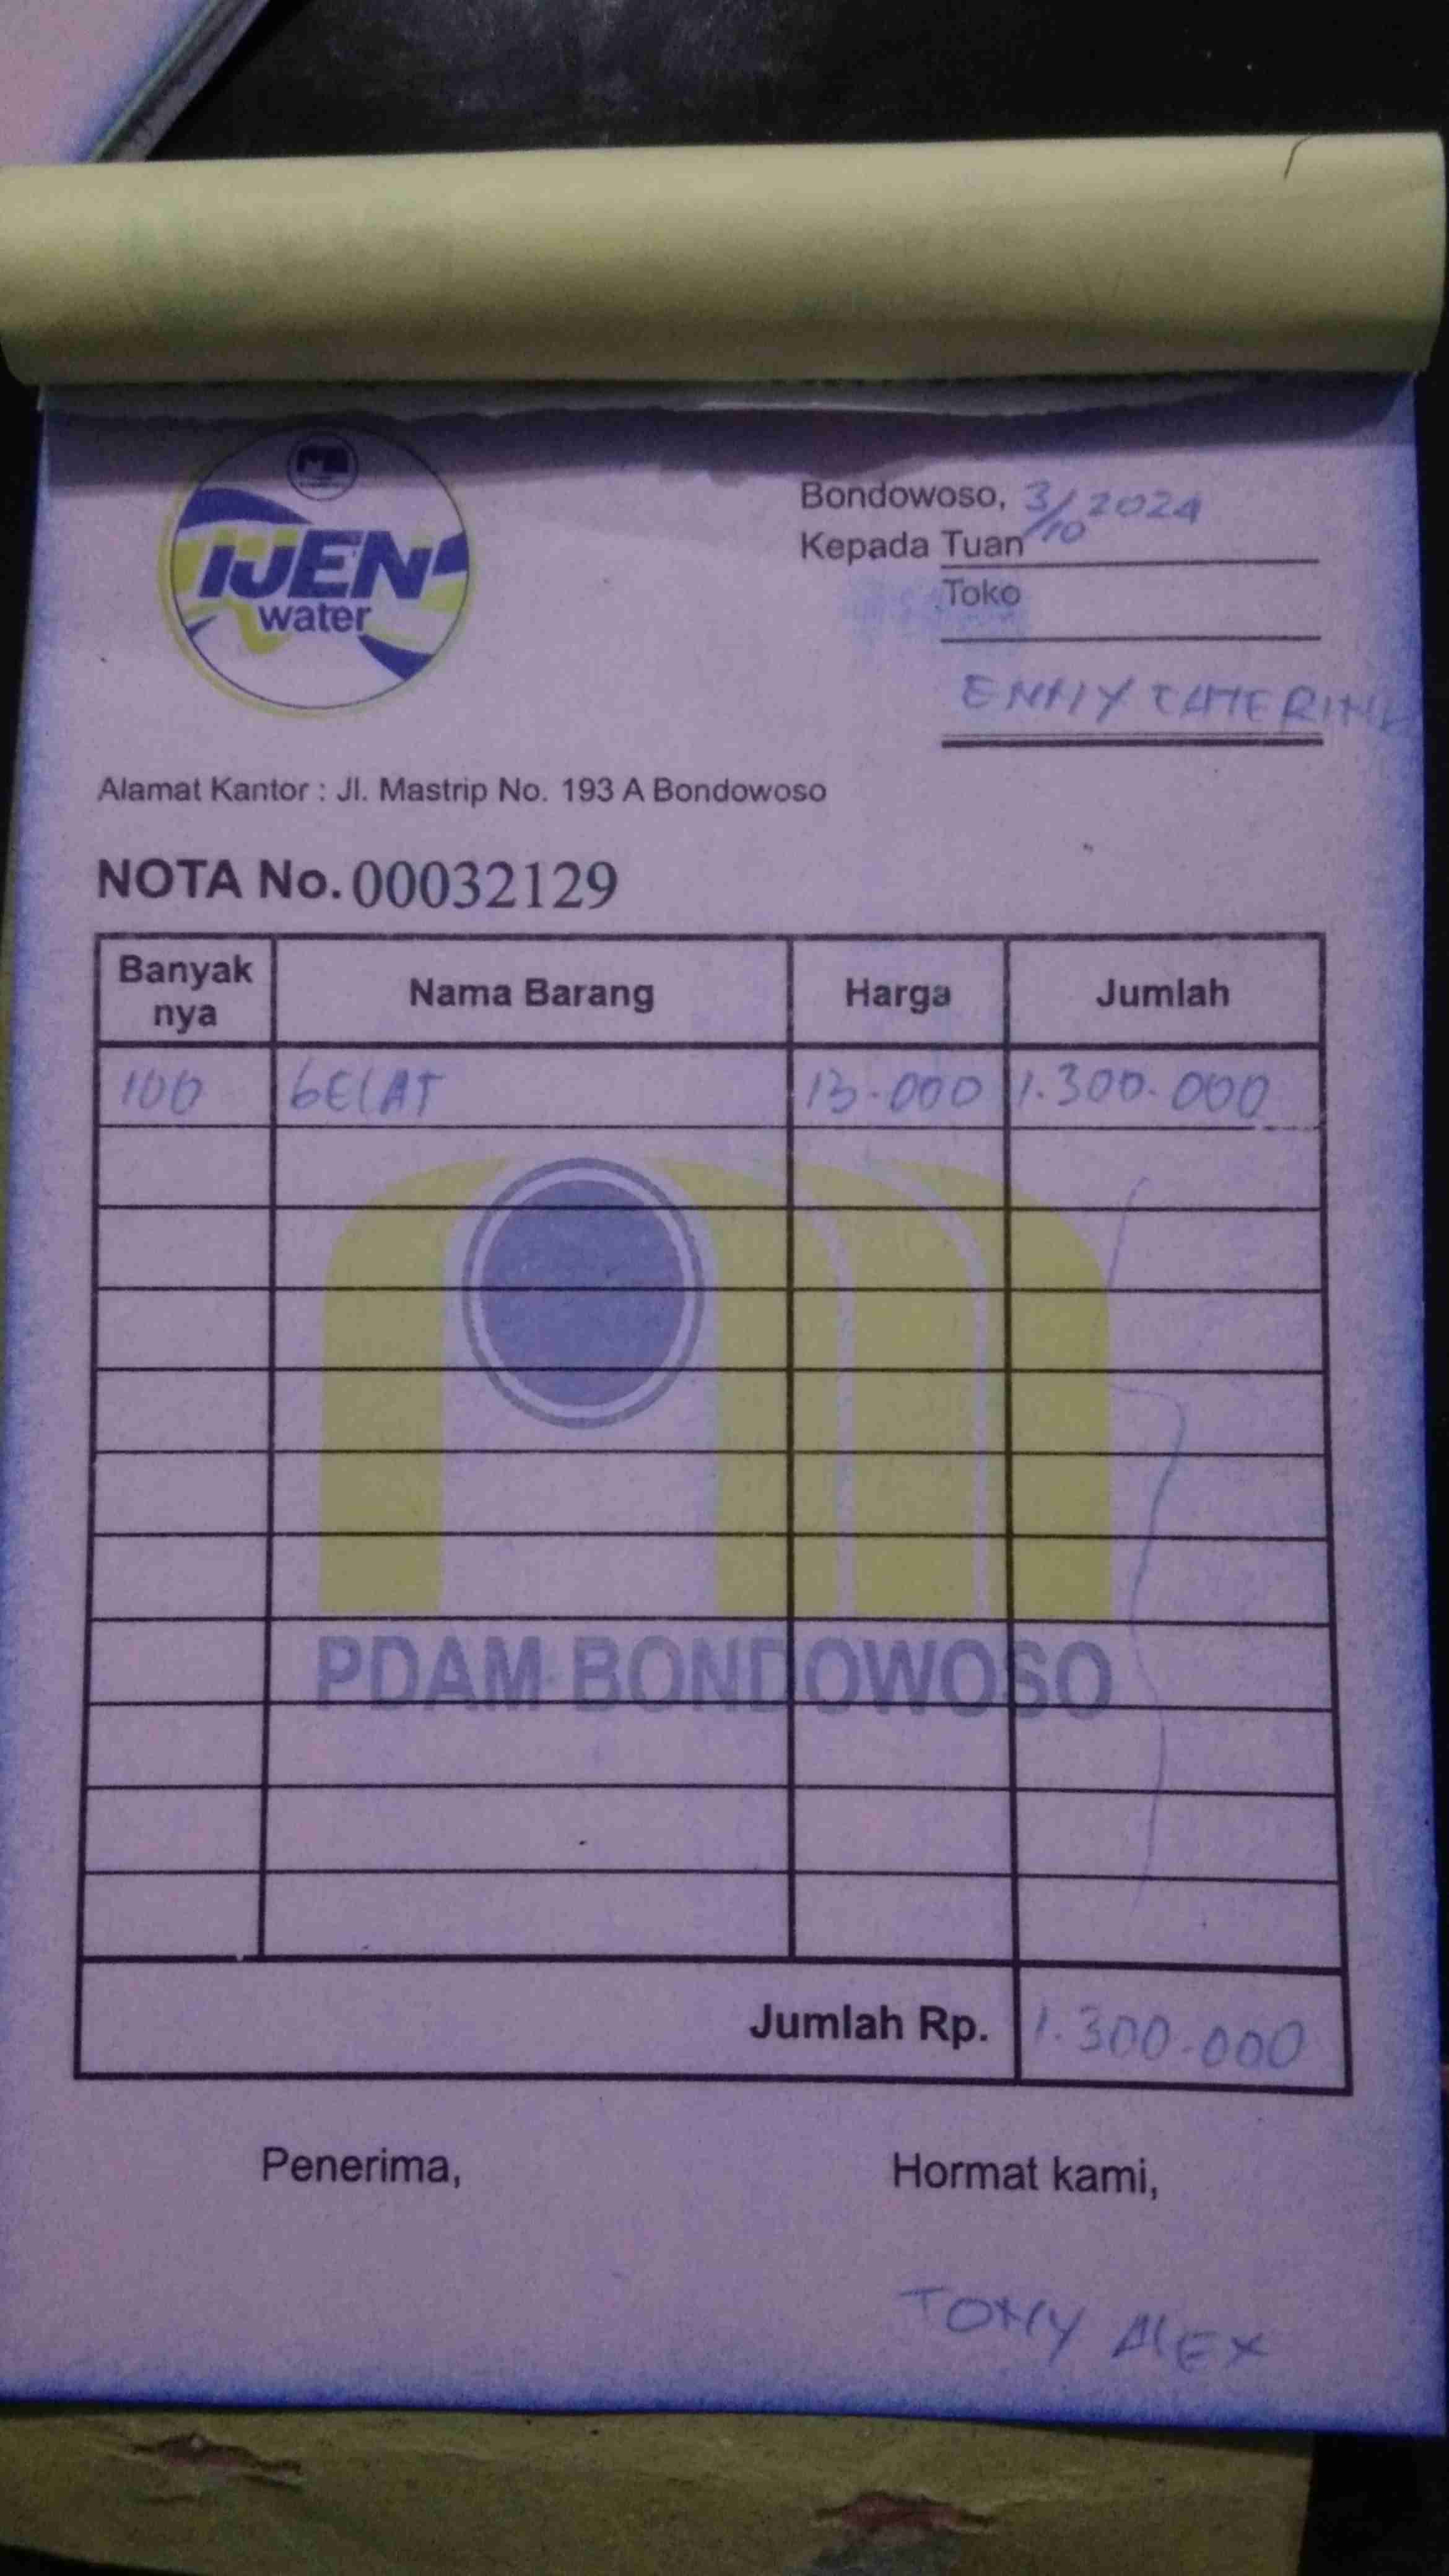 IJEN
water
Bondowoso, 3/10 2024
Kepada Tuan
Toko
ENNY CATERING
Alamat Kantor : Jl. Mastrip No. 193 A Bondowoso
NOTA No. 00032129
Banyak nya Nama Barang Harga Jumlah
100 GELAT 13.000 1.300.000
PDAM BONDOWOSO
Jumlah Rp. 1.300.000
Penerima, Hormat kami,
TONY ALEX